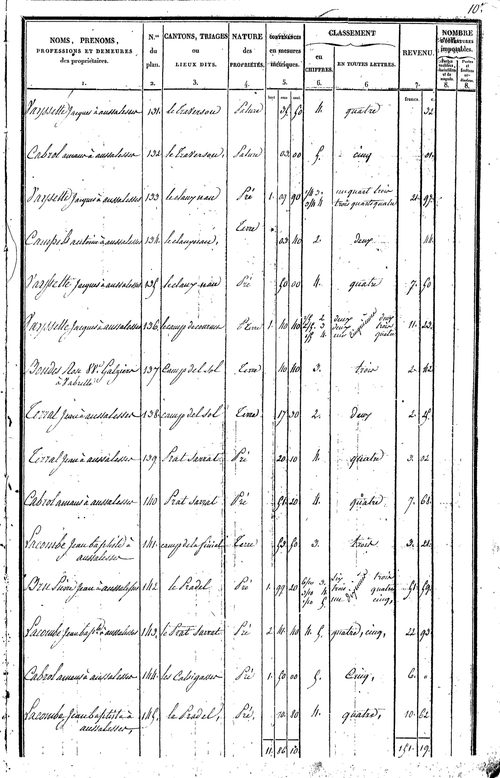 10
NOMS, PRENOMS, PROFESSIONS ET DEMEURES des propriétaires. N.os du plan. CANTONS, TRIAGES ou LIEUX DITS. NATURE des PROPRIÉTÉS. CONTENANCES en mesures métriques. CLASSEMENT en CHIFFRES. EN TOUTES LETTRES. REVENU. NOMBRE D'OUVERTURES imposables.
1. 2. 3. 4. 5. 6. 6 7. 8. 8.
francs. c.
Vayssette Jacques à aussalesses 131. le traversou. Pature 35 50 4. quatre 32
Cabrol amans à aussalesses 132. le traversou. Pature 03 00 5. cinq 01.
Vayssette Jacques à aussalesses 133 le claux nau Pré 1. 09 90 1/4 3. 3/4 4 un quart trois trois quarts quatre 21. 97.
Campels antoine à aussalesses 134. le claux nau. Terre 03 40 2. deux 44.
Vayssette Jacques à aussalesses 135. le claux nau Pré 50 00 4. quatre 7. 50
Vayssette Jacques à aussalesses 136. Terre 1. 40 40 2/5 2 2/5 3 1/5 4 deux deux deux trois un quatre 11. 23.
Bondes Rose Ve Galzin à Vabrelle 137 camp del sol Terre 40 40 3. trois 2. 42
Terral Jean à aussalesses 138. camp del sol Terre 17 30 2. deux 2. 25
Terral Jean à aussalesses 139 Prat Sarrat Pré 20 10 4. quatre 3. 02
Cabrol amans à aussalesses 140 Prat Sarrat Pré 51 20 4. quatre 7. 68.
Lacombe Jean baptiste à aussalesses 141. Terre 53 50 3. trois 3. 21.
Jean à aussalesses 142 le Pradel Pré 1. 99 20 6/10 3. 3/10 4. 1/10 5. six trois trois quatre un cinq, 51. 59.
Lacombe Jean bapte à aussalesses 143. le Prat Sarrat Pré 2. 41. 40 4. 5. quatre, cinq, 22 93.
Cabrol amans à aussalesses 144. les Calsigasses Pré 1. 50 00 5. Cinq, 6. "
Lacombe Jean baptiste à aussalesses, 145. le Pradel, Pré. 70. 80 4. quatre, 10. 62
11. 06 10 151. 19.